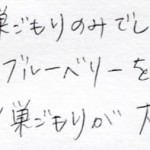 巣ごもりのみでし
ブルーベリーを
巣ごもりが